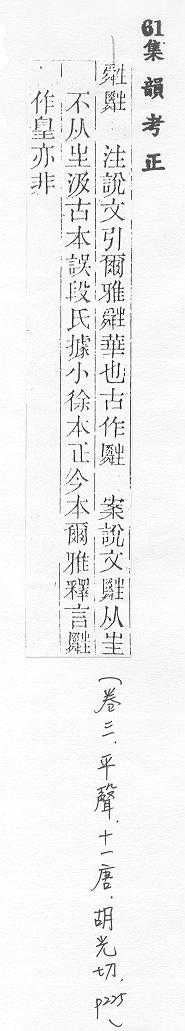 61
集韻考正
䑞 注說文引爾雅䑞華也古作 案說文 从㞷
不从 汲古本誤段氏據小徐本正今本爾雅釋言
作皇亦非
(卷三.平聲.十一唐.胡光切.p225)